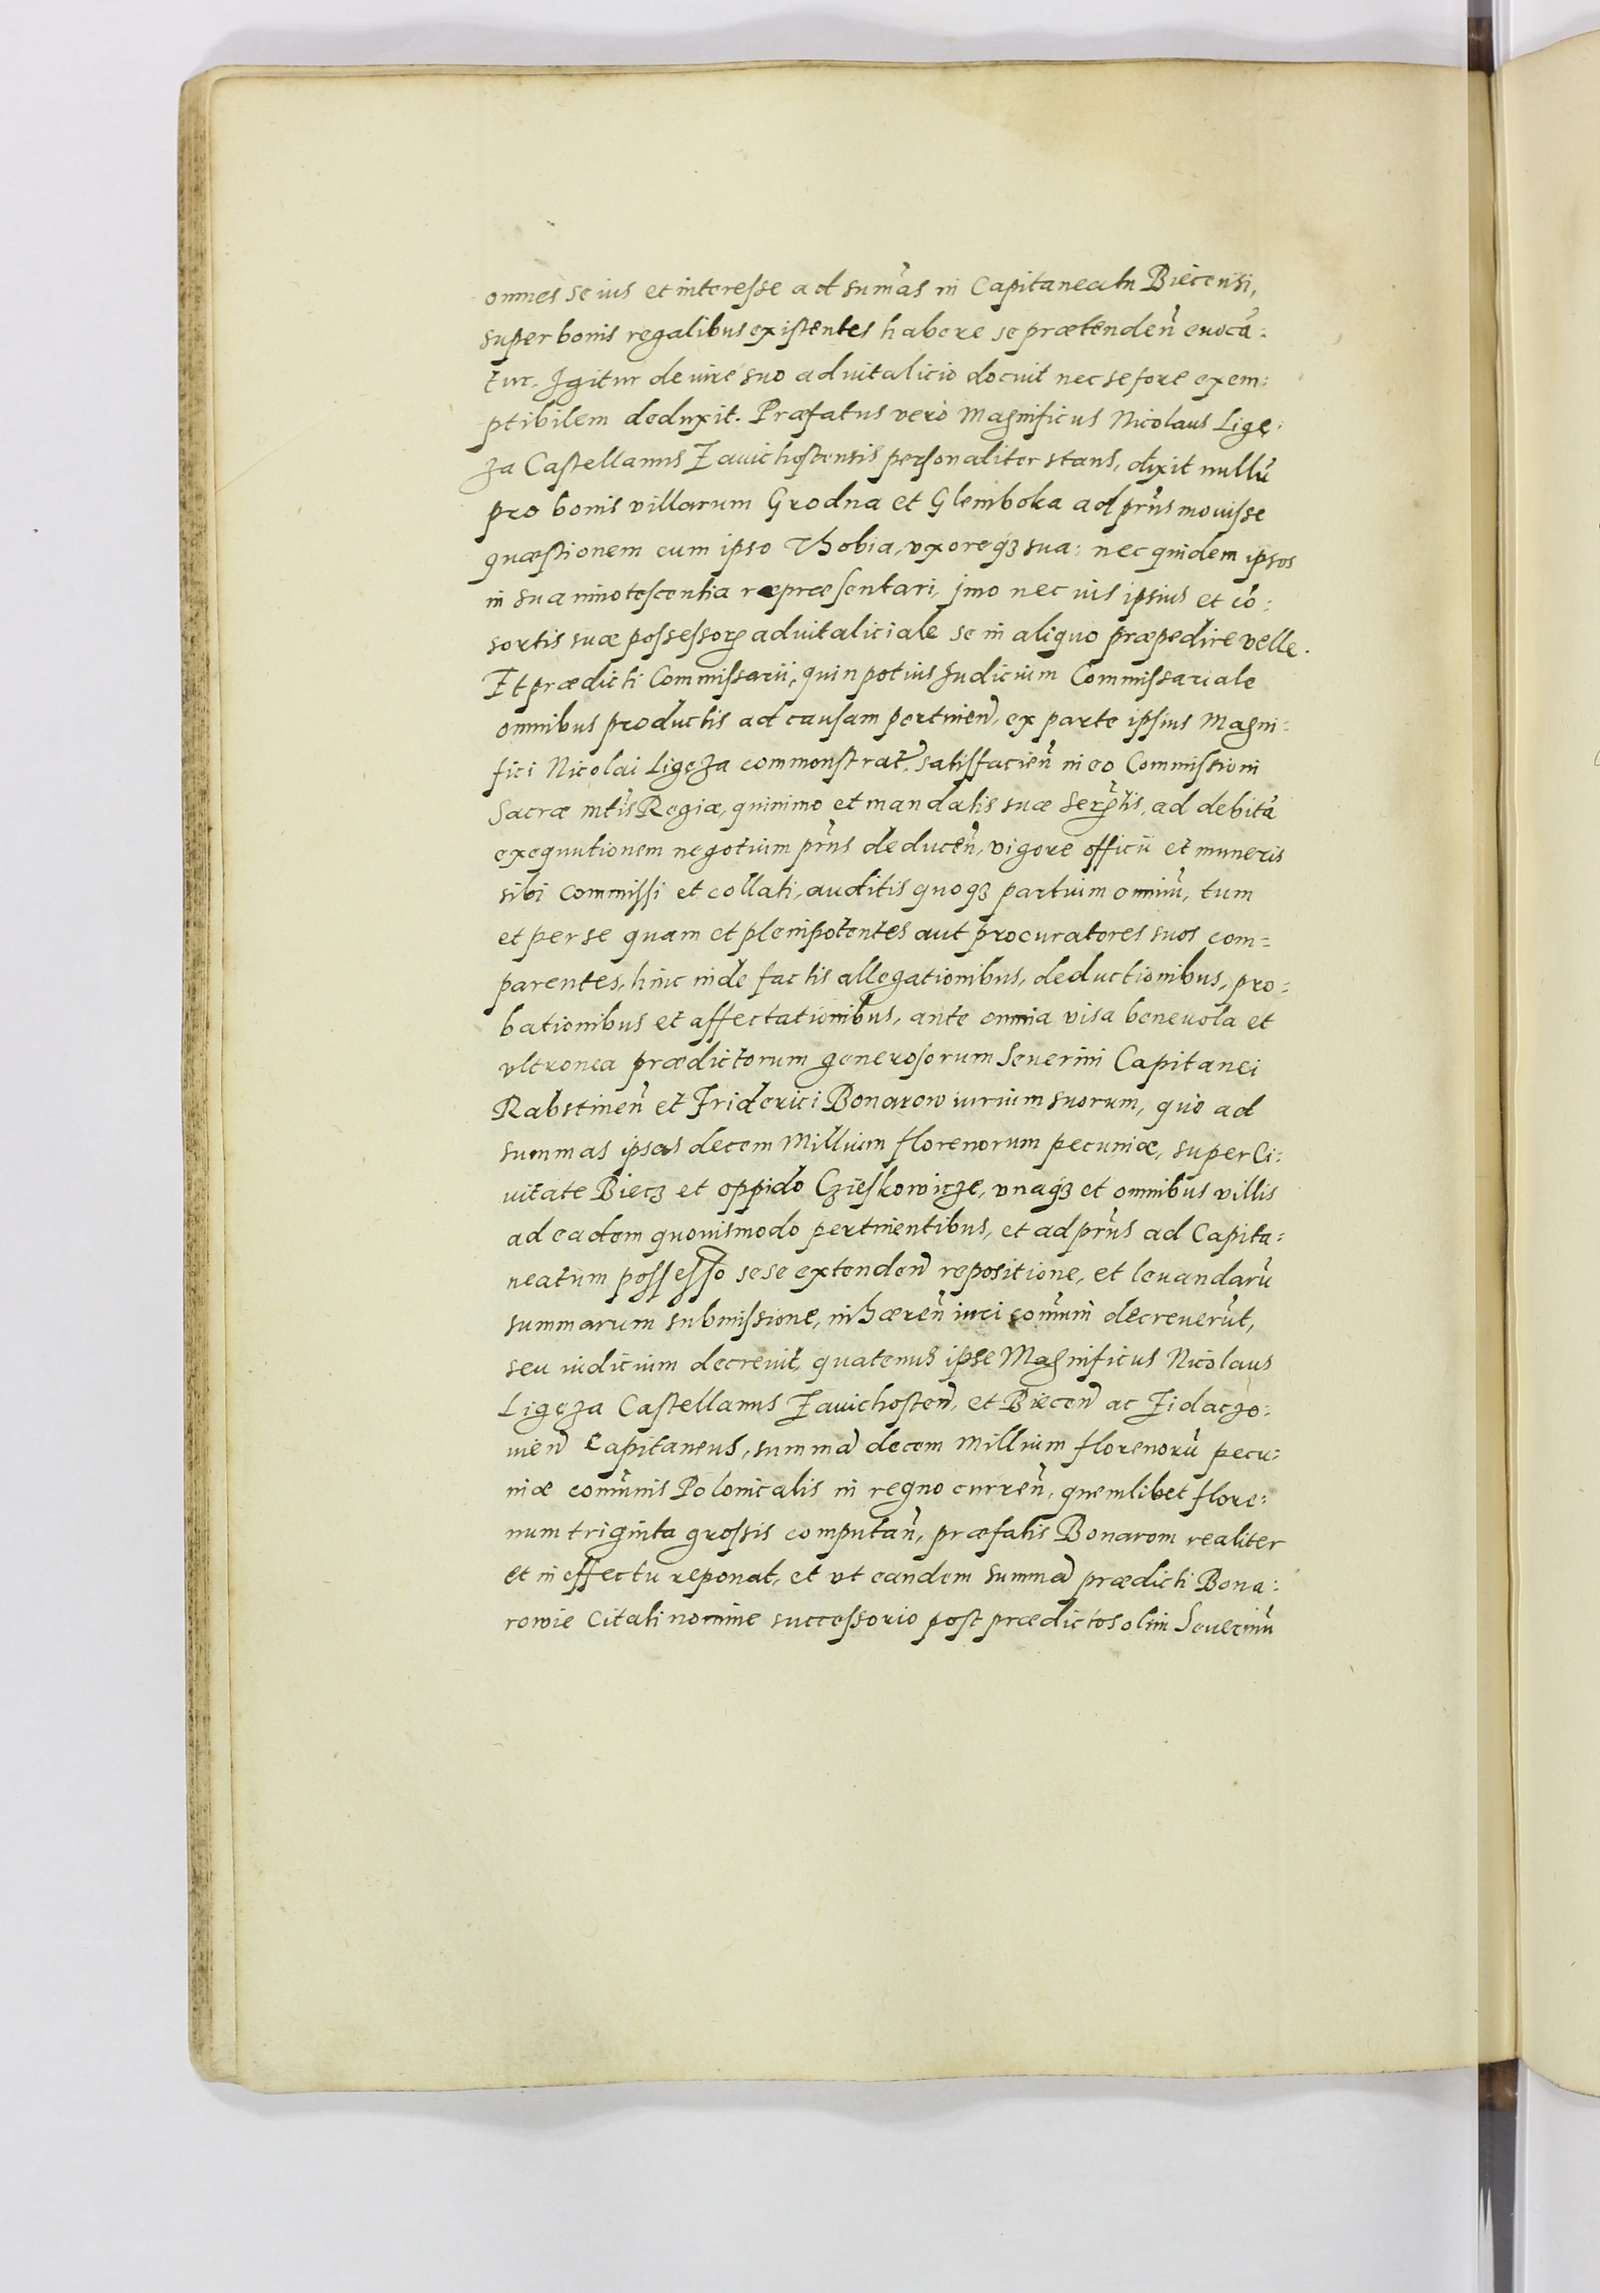 omnes se ius et interesse ad sum̃as in Capitaneatu Biecensi,
super bonis regalibus existentes habere se prætendeñ euocã:
tur. Igitur de iure suo aduitalicio docuit nec se fore exem:
ptibilem deduxit. Præfatus verò Magnificus Nicolaus Ligę:
za Castellanus Zauichostensis personaliter stans, dixit nullũ
pro bonis villarum Grodna et Glemboka ad pr̃ns mouisse
quæstionem cum ipso Thobia, vxoreqȝ sua: nec quidem ipsos
in sua innotescentia repræsentari, jmo nec ius ipsius et cõ:
sortis suæ possessorꝫ aduitaliciale se in aliquo præpedire velle.
Et prædicti Commissarii, quin potius Iudicium Commissariale
omnibus productis ad causam pertineñ, ex parte ipsius Magni:
fici Nicolai Ligęza commonstrat̃, satisfacieñ in eo Commissioni
Sacræ mt̃is Regiæ, quinimo et mandatis suæ Ser̃tis, ad debitã
exequutionem negotium pr̃ns deduceñ, vigore officii et muneris
sibi commissi et collati, auditis quoqȝ partium omniũ, tum
et per se quam et plenipotentes aut procuratores suos com=
parentes, hinc inde factis allegationibus, deductionibus, pro:
bationibus et affectationibus, ante omnia visa beneuola et
vltronea prædictorum generosorum Seuerini Capitanei
Rabstineñ et Friderici Bonarow iurium suorum, quo ad
summas ipsas decem Millium florenorum pecuniæ, super Ci:
uitate Biecz et oppido Czieskowicze, vnaqȝ et omnibus villis
ad eadem quouismodo pertinentibus, et ad pr̃ns ad Capita:
neatum possesso sese extendeñ repositione, et leuandarũ
summarum submissione, inhæreñ iuri com̃uni decreuerũt,
seu iudicium decreuit, quatenus ipse Magnificus Nicolaus
Ligęza Castellanus Zauichosteñ, et Bieceñ ac Zidaczo:
uieñ Capitaneus, summã decem Millium florenorũ pecu:
niæ com̃unis Polonicalis in regno curreñ, quemlibet flore:
num triginta grossis computañ, præfatis Bonarom realiter
et in effectu reponat, et vt eandem summã prædicti Bona:
rowie Citati nomine successorio post prædictos olim Seuerinũ